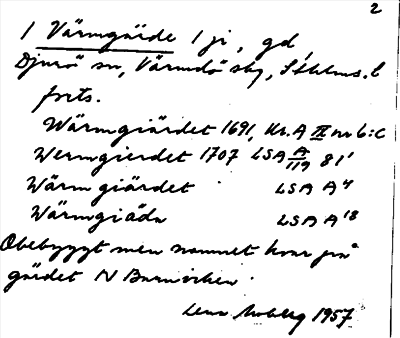 2
1 Värmgärde 1 ji, gd,
Djurö sn, Värmdö skg, Sthlms. l
forts.
Wärmgiärdet 1691, Kr. A II nr 6:c
Wermgierdet 1707 LSA A/119 81'
Wärmgiärdet LSA A⁴
Wärmgiäda LSA A¹⁸
Obebyggt men namnet kvar på
gärdet N Barnviken.
Lena Moberg 1957